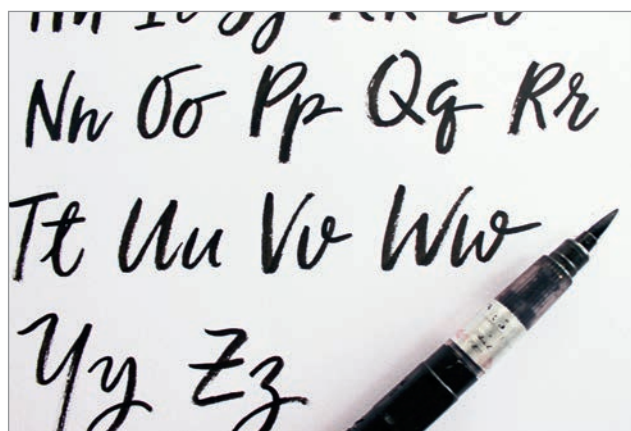 Nn Oo Pp Qq Rr
Tt Uu Vv Ww
Yy Zz